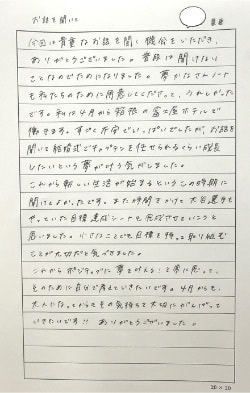 お話を聞いて
今回は貴重なお話を聞く機会をいただき、
ありがとうございました。普段は聞けない
ことなのでためになりました。夢かなえノート
も私たちのために用意してくださって、うれしかった
です。私は4月から箱根の富士屋ホテルで
働きます。すごく不安でいっぱいでしたが、お話を
聞いて結婚式でキャプテンを任せられるくらい成長
したいという夢が叶う気がしました。
これから新しい生活が始まるというこの時期に
聞けてよかったです。また時間をかけて大谷選手も
やっていた目標達成シートを完成させたいなと
思いました。小さなことでも目標を持って取り組む
ことが大切だと気づきました。
これからポジティブに夢を叶える！と常に思って、
そのために自分で考えていきたいです。4月からも、
大人になってからもその気持ちを大切にがんばって
いきたいです!! ありがとうございました。
20×20